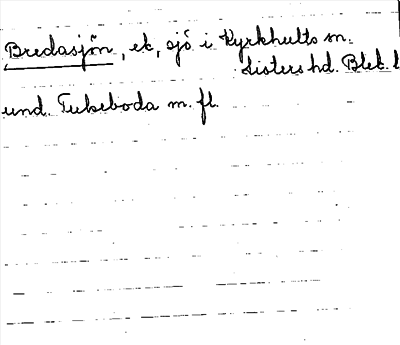 Bredasjön, ek, sjö i Kyrkhults sn.
Listers hd. Blek. l
und. Tubeboda m. fl.